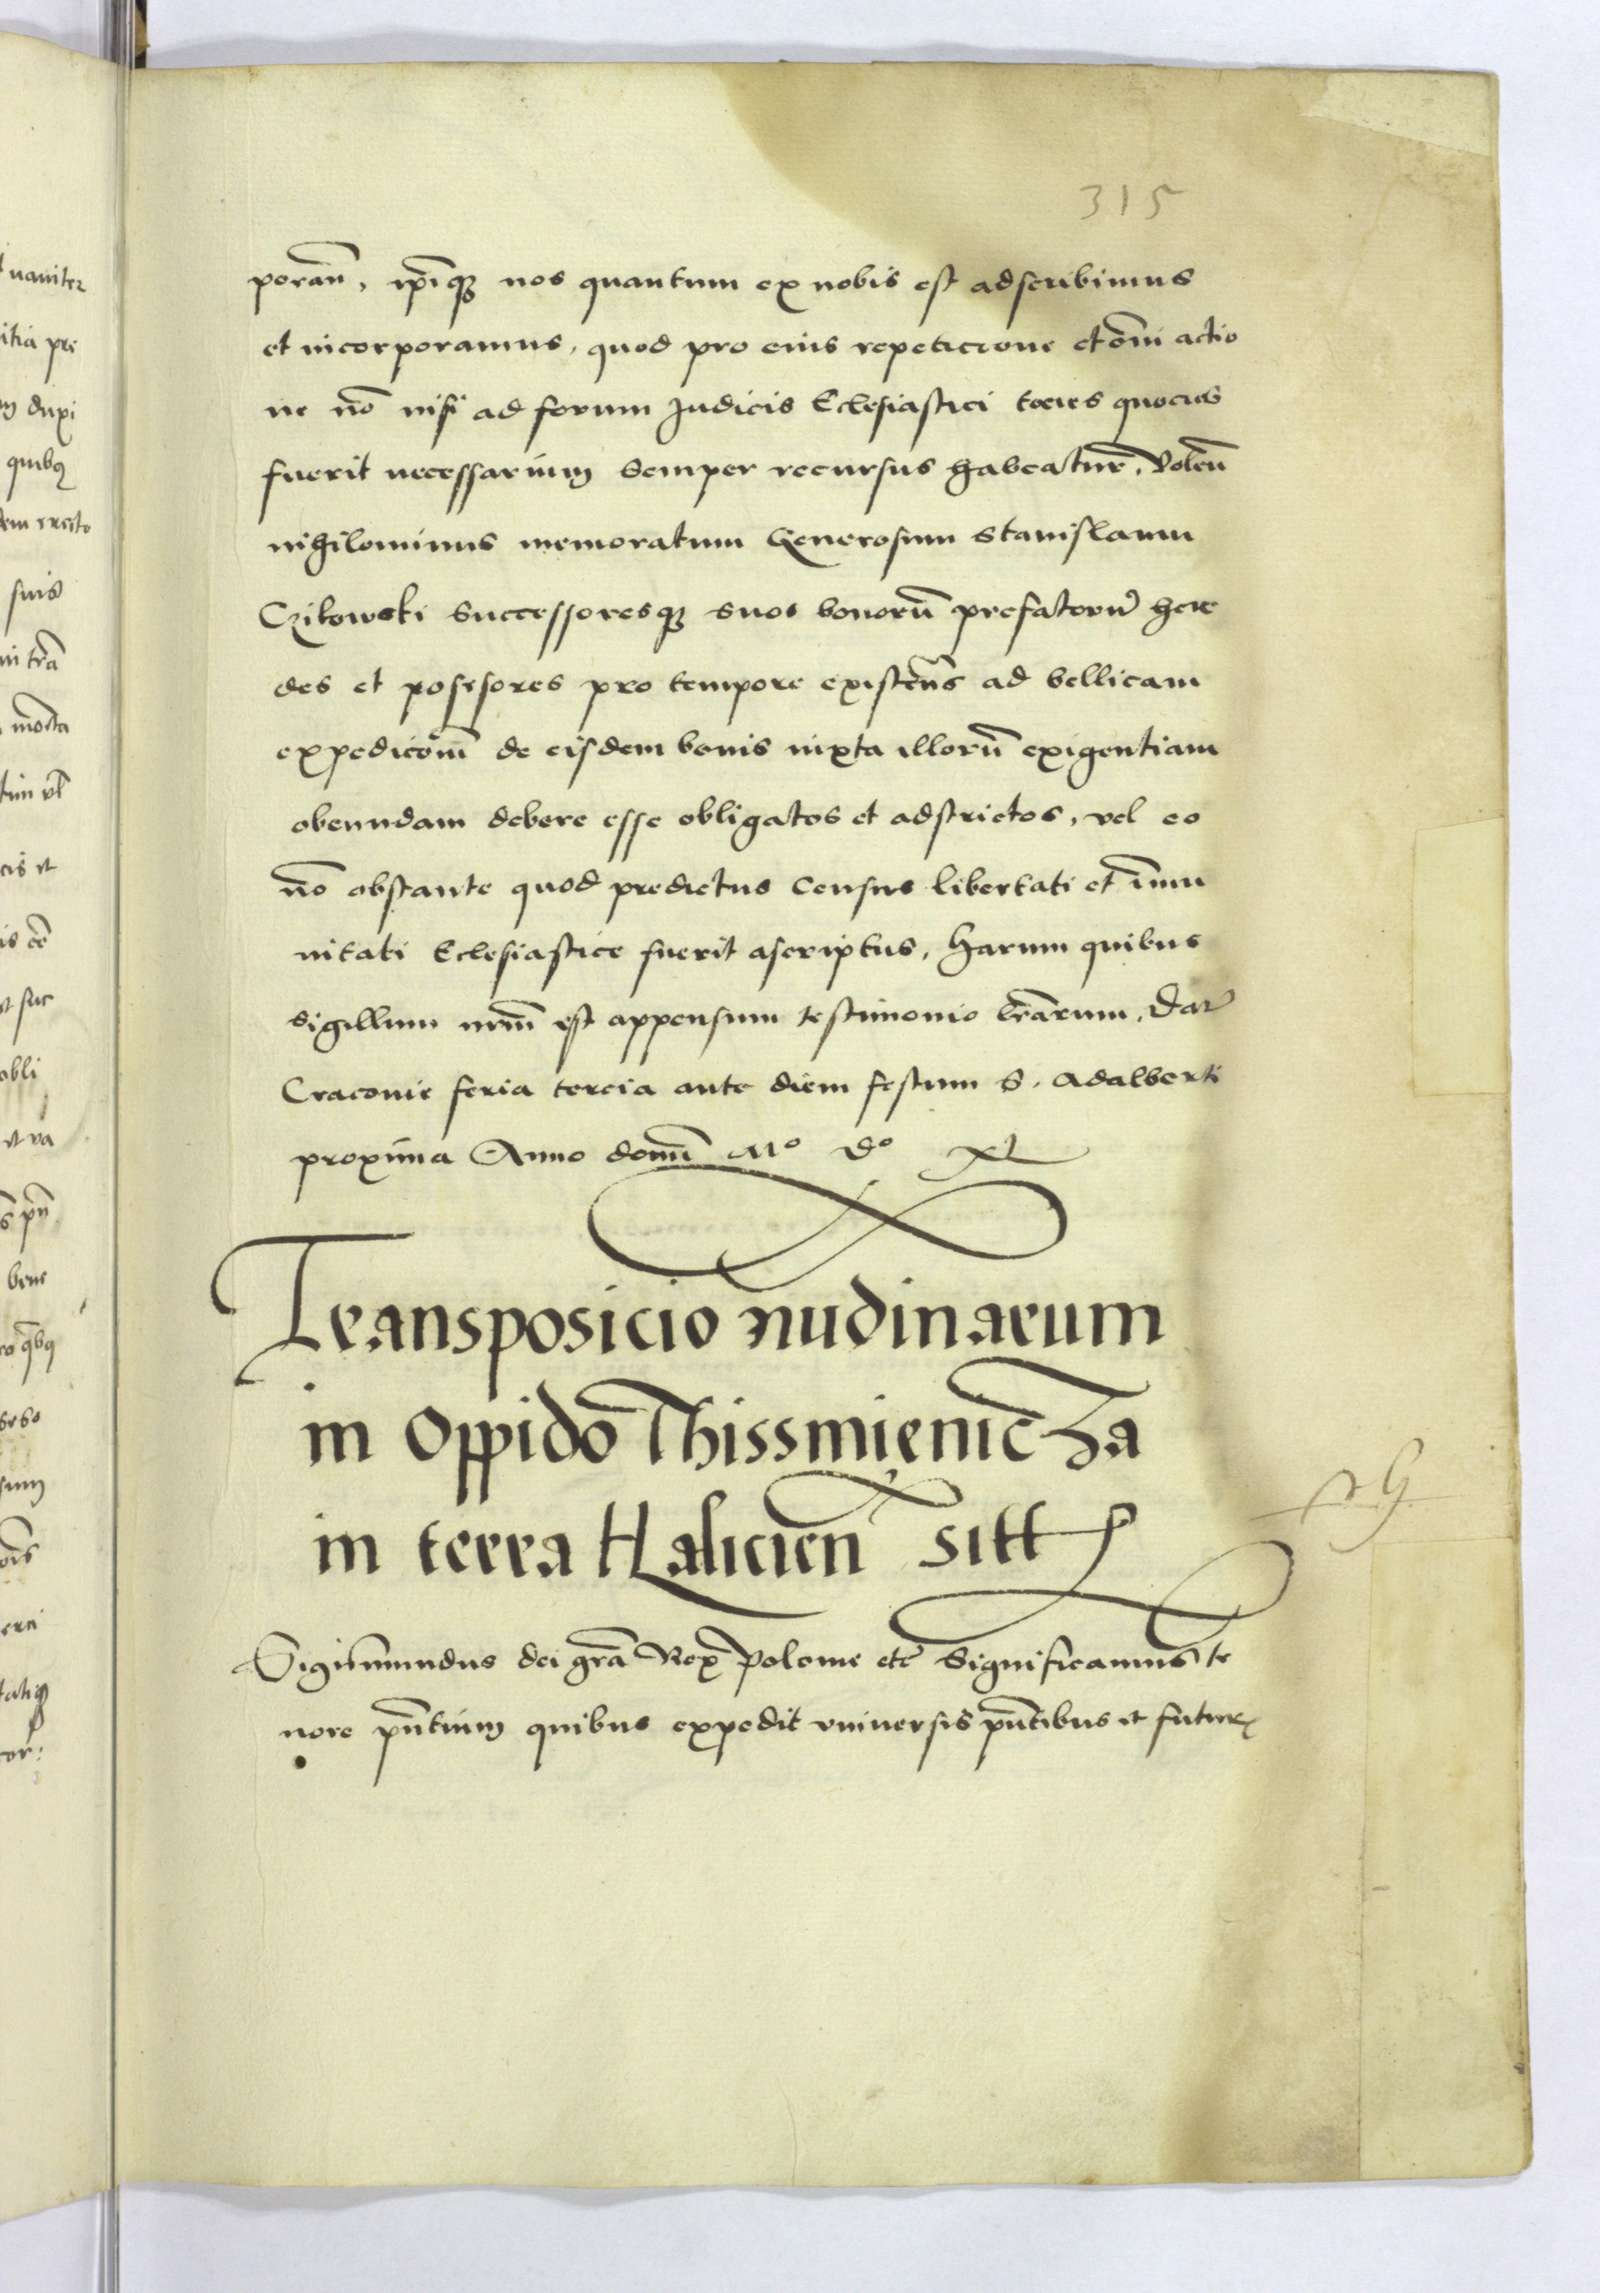 315
poran̄, ip̄iqꝫ nos quantum ex nobis est adscribimus
et incorporamus, quod pro eius repeticione et om̄i actio
ne nō nisi ad forum Judicis Eclesiastici tocies quocies
fuerit necessarium semper recursus habeatur. Volen̄
nihilominus memoratum Generosum Stanislaum
Czikowski Successoresqꝫ suos bonorū prefatorū here
des et posesores pro tempore existen̄s ad bellicam
expedicōm̄ de eisdem bonis iuxta illorū exigentiam
obeundam debere esse obligatos et adstrictos, vel eo
nō obstante quod predictus Census libertati et im̄u
nitati Eclesiastice fuerit ascriptus, Harum quibus
sigillum nrm̄ est appensum testimonio lrārum. Dat
Cracovie feria tercia ante diem festum S. Adalberti
proxima Anno domī Mo Do xl
Transposicio nudinarum
in Oppido Thissmięnicza
in terra Halicien̄ sitt
Sigismundus dei grā Rex Polonie etc Significamus te
nore pn̄tium quibus expedit vniversis pn̄tibus et futur